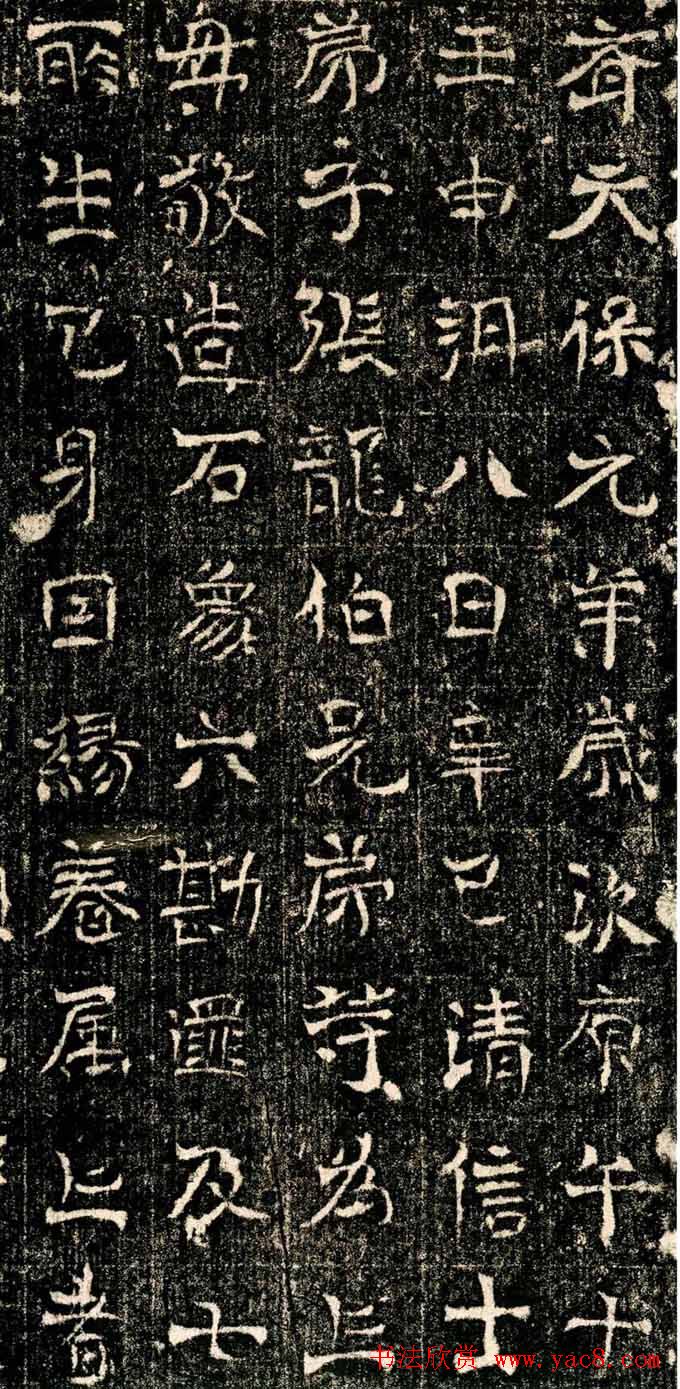 齊天保元年歲次庚午十
壬申朔八日辛巳清信士
弟子張龍伯兄弟等為亡
母敬造石象六勘及七
所生己身因緣眷属亡者
书法欣赏 www.yac8.com